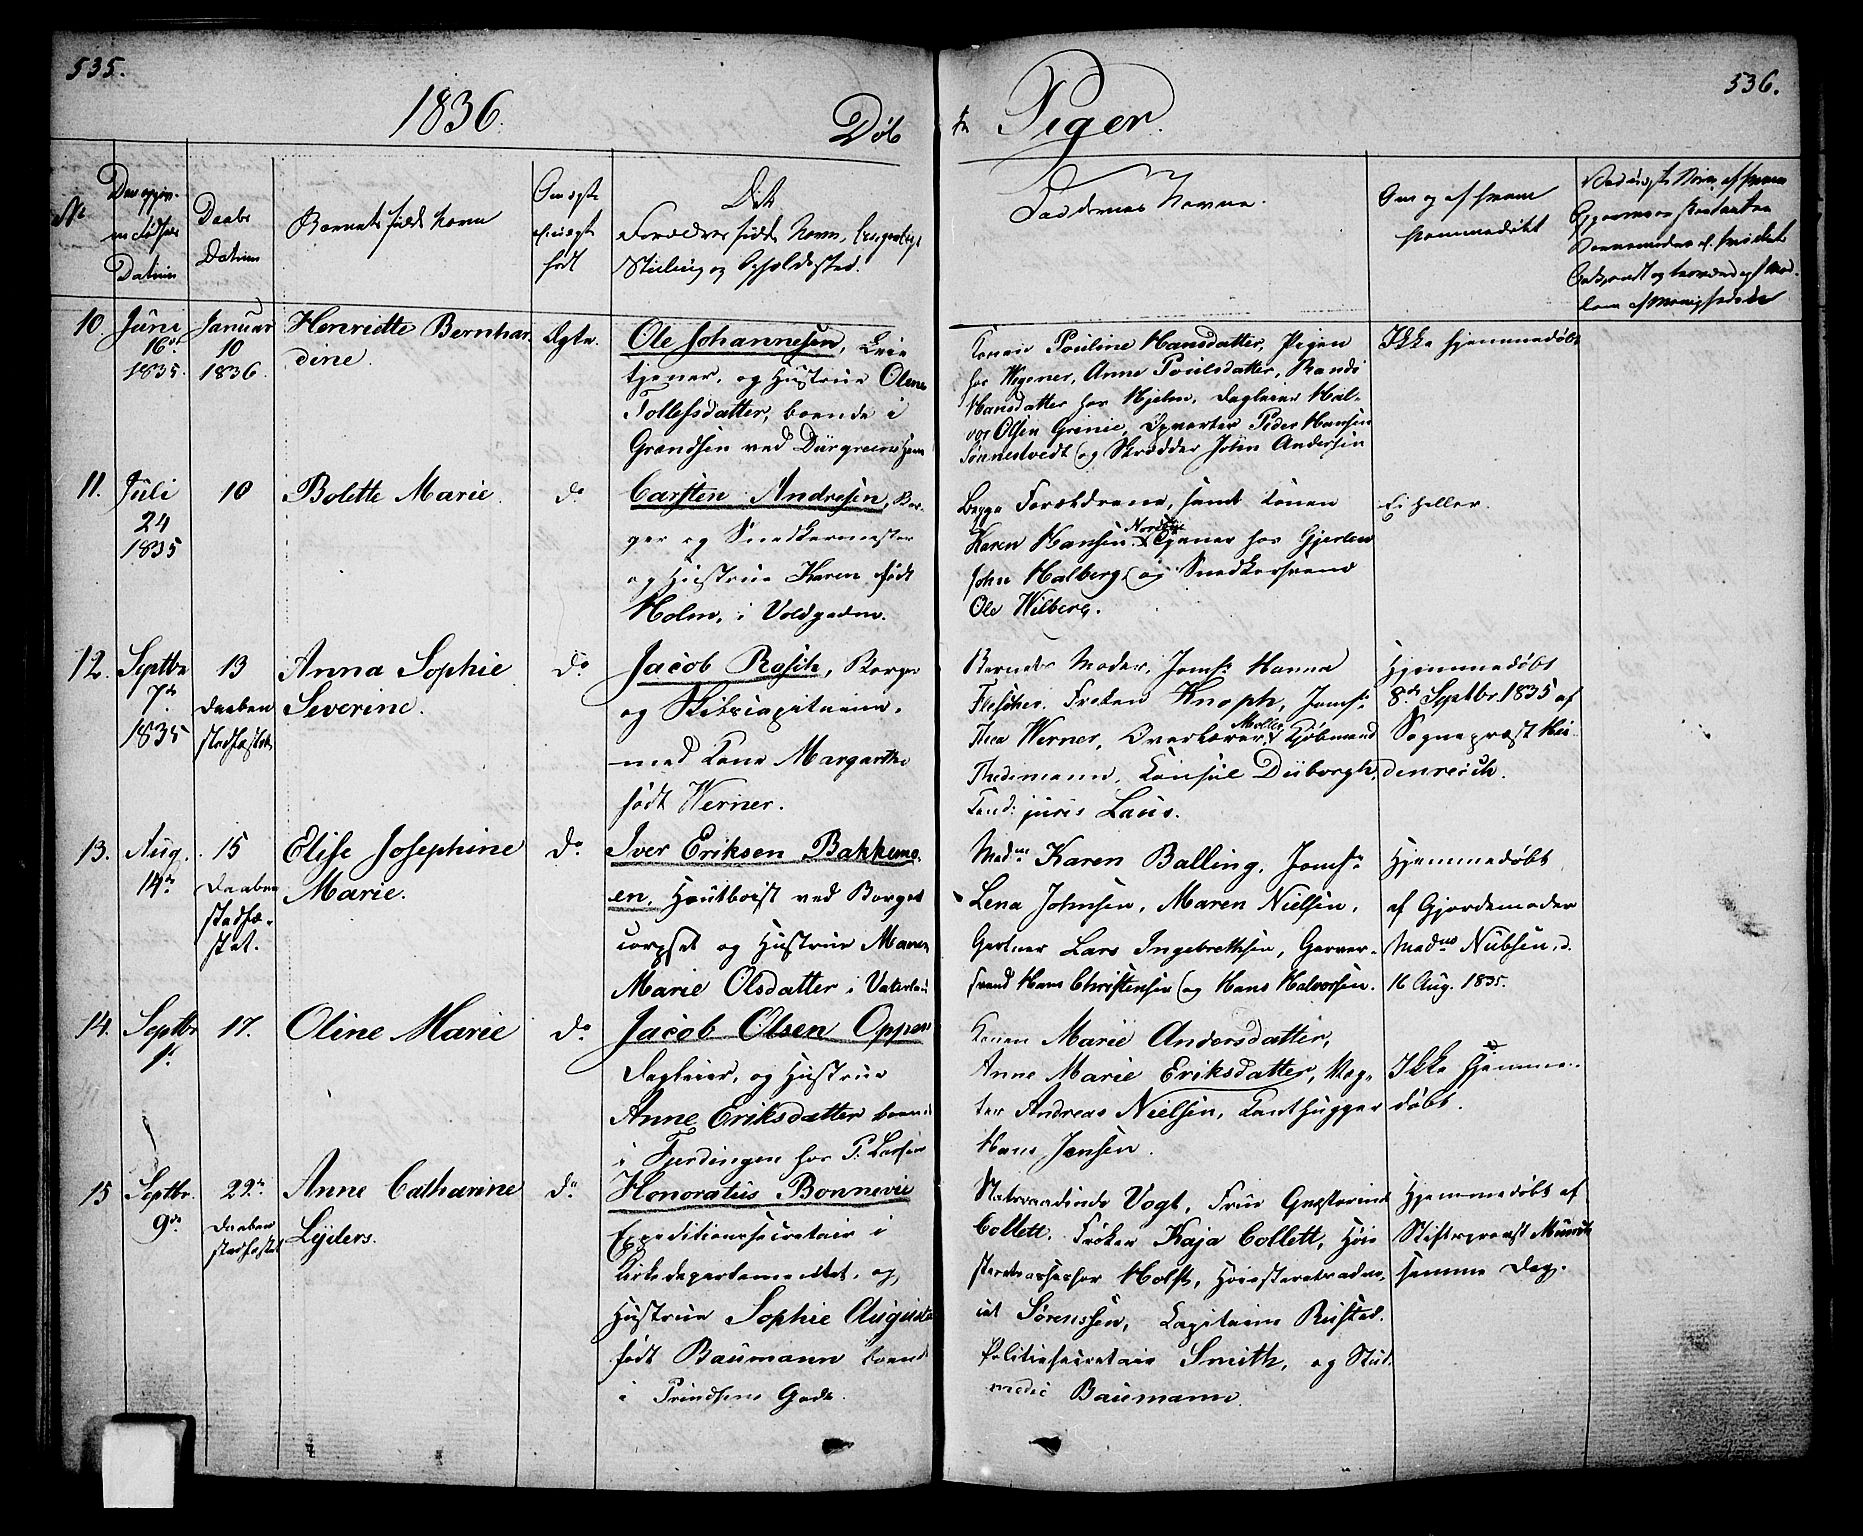 535.
1836.
Døb
te Piger.
536.
No
Den opgiv-
ne Fødsels
Datum
Daabs
Datum
Barnets fulde Navn
Om ægte
eller uægte
født
Det
Forældres fulde Navn, borgerlige
Stilling og Opholdssted.
Faddernes Navne.
Om og af hvem
hjemmedøbt
10.
Juni
16de
1835.
Januar
10
1836.
Henriette Bernhar
dine.
Ægte.
Ole Johannesen, Leie
tjener, og Hustrue Olene
Tollefsdatter, boende i
Grændsen ved
Konen Pouline Hansdatter, Pigen
hos Wegener, Anne Poulsdatter, Randi
Hansdatter hos Hjelm, Dagleier Hal-
vor Olsen Grinie, Opvarter Peder Hansen
Sonnedvedt og Skrædder John Andersen
Ikke hjemmedøbt
11.
Juli
24
1835
10
Bolette Marie.
do
Carsten Andresen, Bor-
ger og Snedkermester
og Hustrue Karen født
Holm, i Voldgaden.
Begge Forældrene, samt Konen
Karen Hansen, Tjener hos Gjertsen
John Halberg og Snedkersvend
Ole Wilberg.
Ei heller.
12.
Septbr
7de
1835
13
Daaben
stadfæstet
Anna Sophie
Severine.
do
Jacob Rasch, Borger
og Skibscapitaine,
med Kone Margarthe
født Werner.
Barnets Moder, Jomfr Hanna
Flescher, Frøken Knoph, Jomfr
Thea Werner, Overlærer Møller, Kjøbmand
Thedemann, Konsul Duborgh,
Cand: juris Laus.
Hjemmedøbt
8de Septbr. 1835 af
Sognepræst Hei-
denreich.
13.
Aug.
14de
15
Daaben
stadfæ-
stet.
Elise Josephine
Marie.
do.
Iver Eriksen Bakkeme-
en, Houtboist ved Borger
corpset og Hustrue Maren
Marie Olsdatter i Vaterland
Madme Karen Balling, Jomfr
Lena Johnsen, Maren Nielsen,
Gartner Lars Ingebrethsen, Garver-
svend Hans Christensen og Hans Halvorsen.
Hjemmedøbt
af Gjordemoder
Madme Nubsen, d.
16 Aug. 1835.
14.
Septbr
1.
17.
Oline Marie
do.
Jacob Olsen Oppen
Dagleier, og Hustrue
Anne Eriksdatter boende
i Fjerdingen hos P. Larsen
Konen Marie Andersdatter,
Anne Marie Eriksdatter, Væg-
ter Andreas Nielsen, Tomthugger
Hans Jensen.
Ikke hjemme-
døbt.
15
Septbr.
9de
29de
Daaben
stadfæstet
Anne Catharine
Lyders.
do
Honoratus Bonnevie
Expeditionssecretair i
Kirkedepartementet, og
Hustrue Sophie Augusta
født Baumann boende
i Prindsens Gade.
Statsraadinde Vogt, Frue Grosserinde
Collett. Frøken Kaja Collett, Høie
steretsassessor Holst, Høiesteretsadvo-
cat Sørenssen, Kapitaine Rusted.
Politiesecretair Smith, og Stud:
medic Baumann.
Hjemmedøbt af
Stiftsprovst Munch
samme Dag.